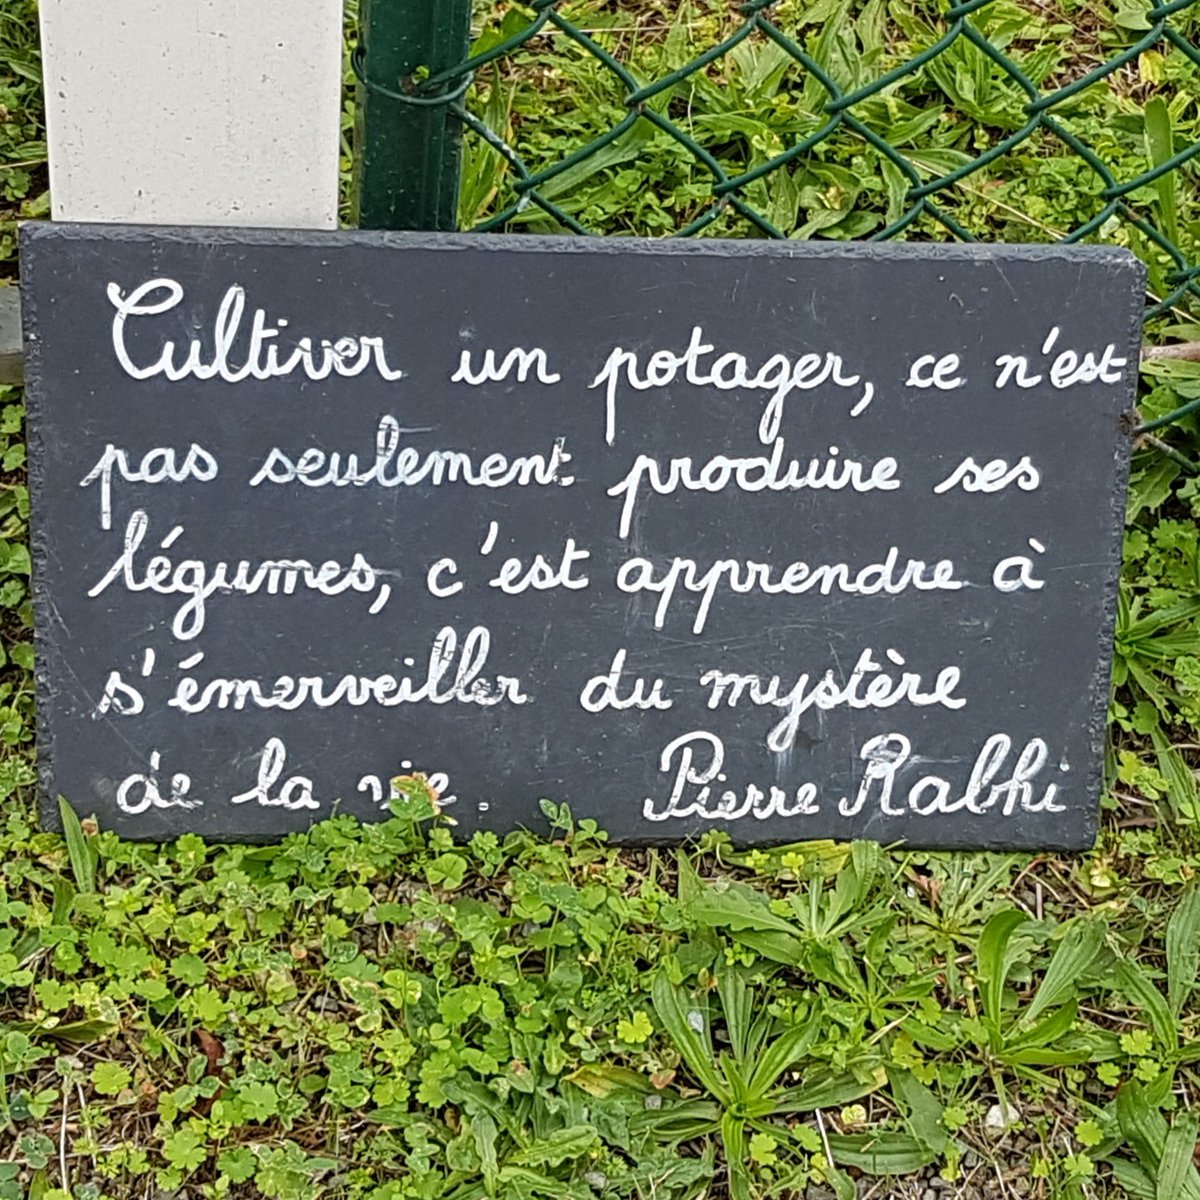 Cultiver un potager, ce n'est
pas seulement produire ses
légumes, c'est apprendre à
s'émerveiller du mystère
de la vie. Pierre Rabhi